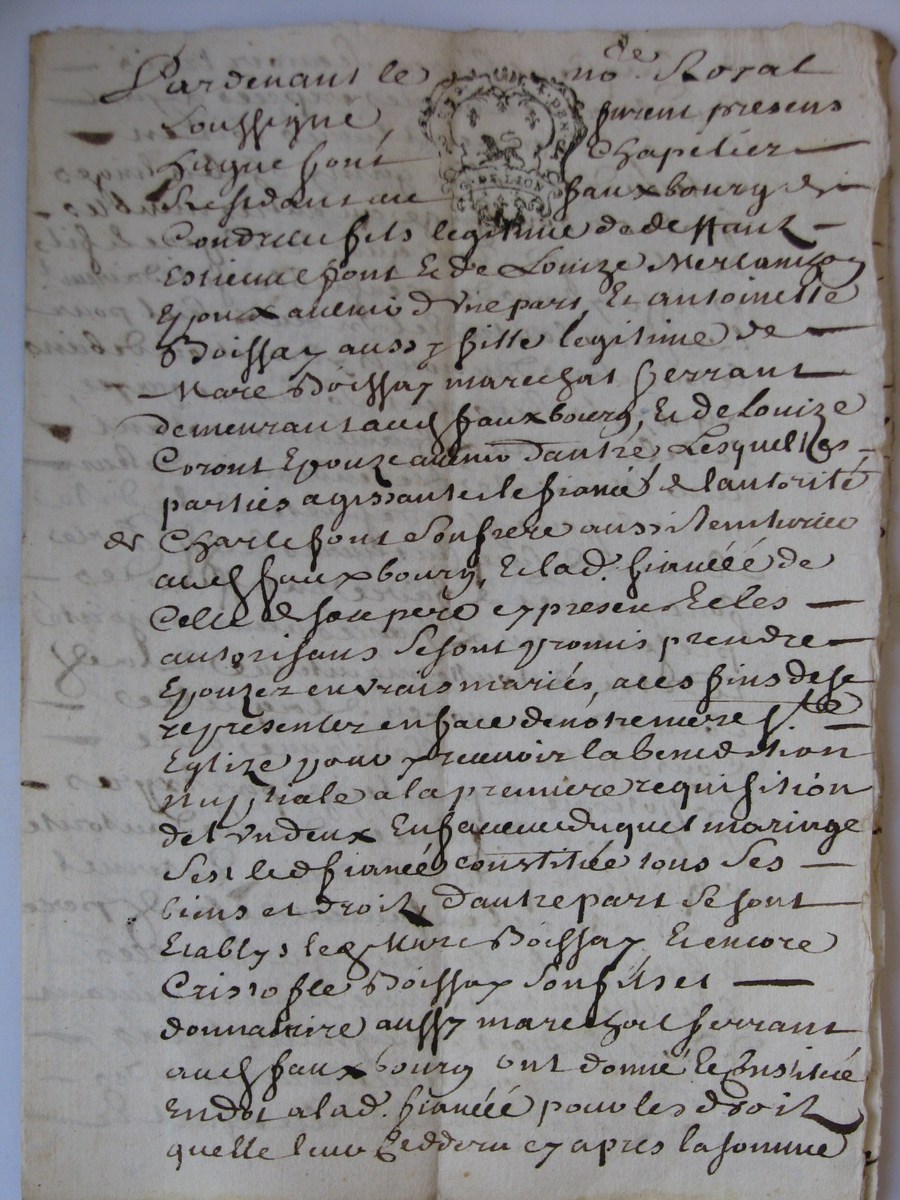 Pardevant le no.re Royal
soussigne, furent presens
hugue font Chapelier
Residant au fauxbourg de
Condrieu fils legitime de deffunt
Estienne font Et de Louize Merlanchon
Epoux avenir d'Une part, Et antoinette
Boissay aussy fille legitime de
Marc Boissay marechal ferrant
demeurant aud fauxbourg, Et de Louize
Coront Epouze avenir d'autre Lesquelles
parties agissantes le fiancé de l'autorité
de Charle font son frere aussi
aud fauxbourg, Et lad. fiancée de
Celle de son pere cy present Et les
autorisans se sont promis prendre
Epouzer en vrais mariés, a ces fins de se
representer en face de nôtre mere ste
Eglize pour y recevoir la benediction
nuptiale a la premiere requisition
de l'Un deux En faveur duquel mariage
sest led fiancé constitüé tous ses
biens et droit, d'autre part se sont
Etablys led Marc Boissay Et encore
Cristofle Boissay son fils et
donnataire aussy marechal ferrant
aud fauxbourg ont donné Et Constitué
En dot a lad. fiancée pour les droit
quelle leur cy apres la somme
DE LION